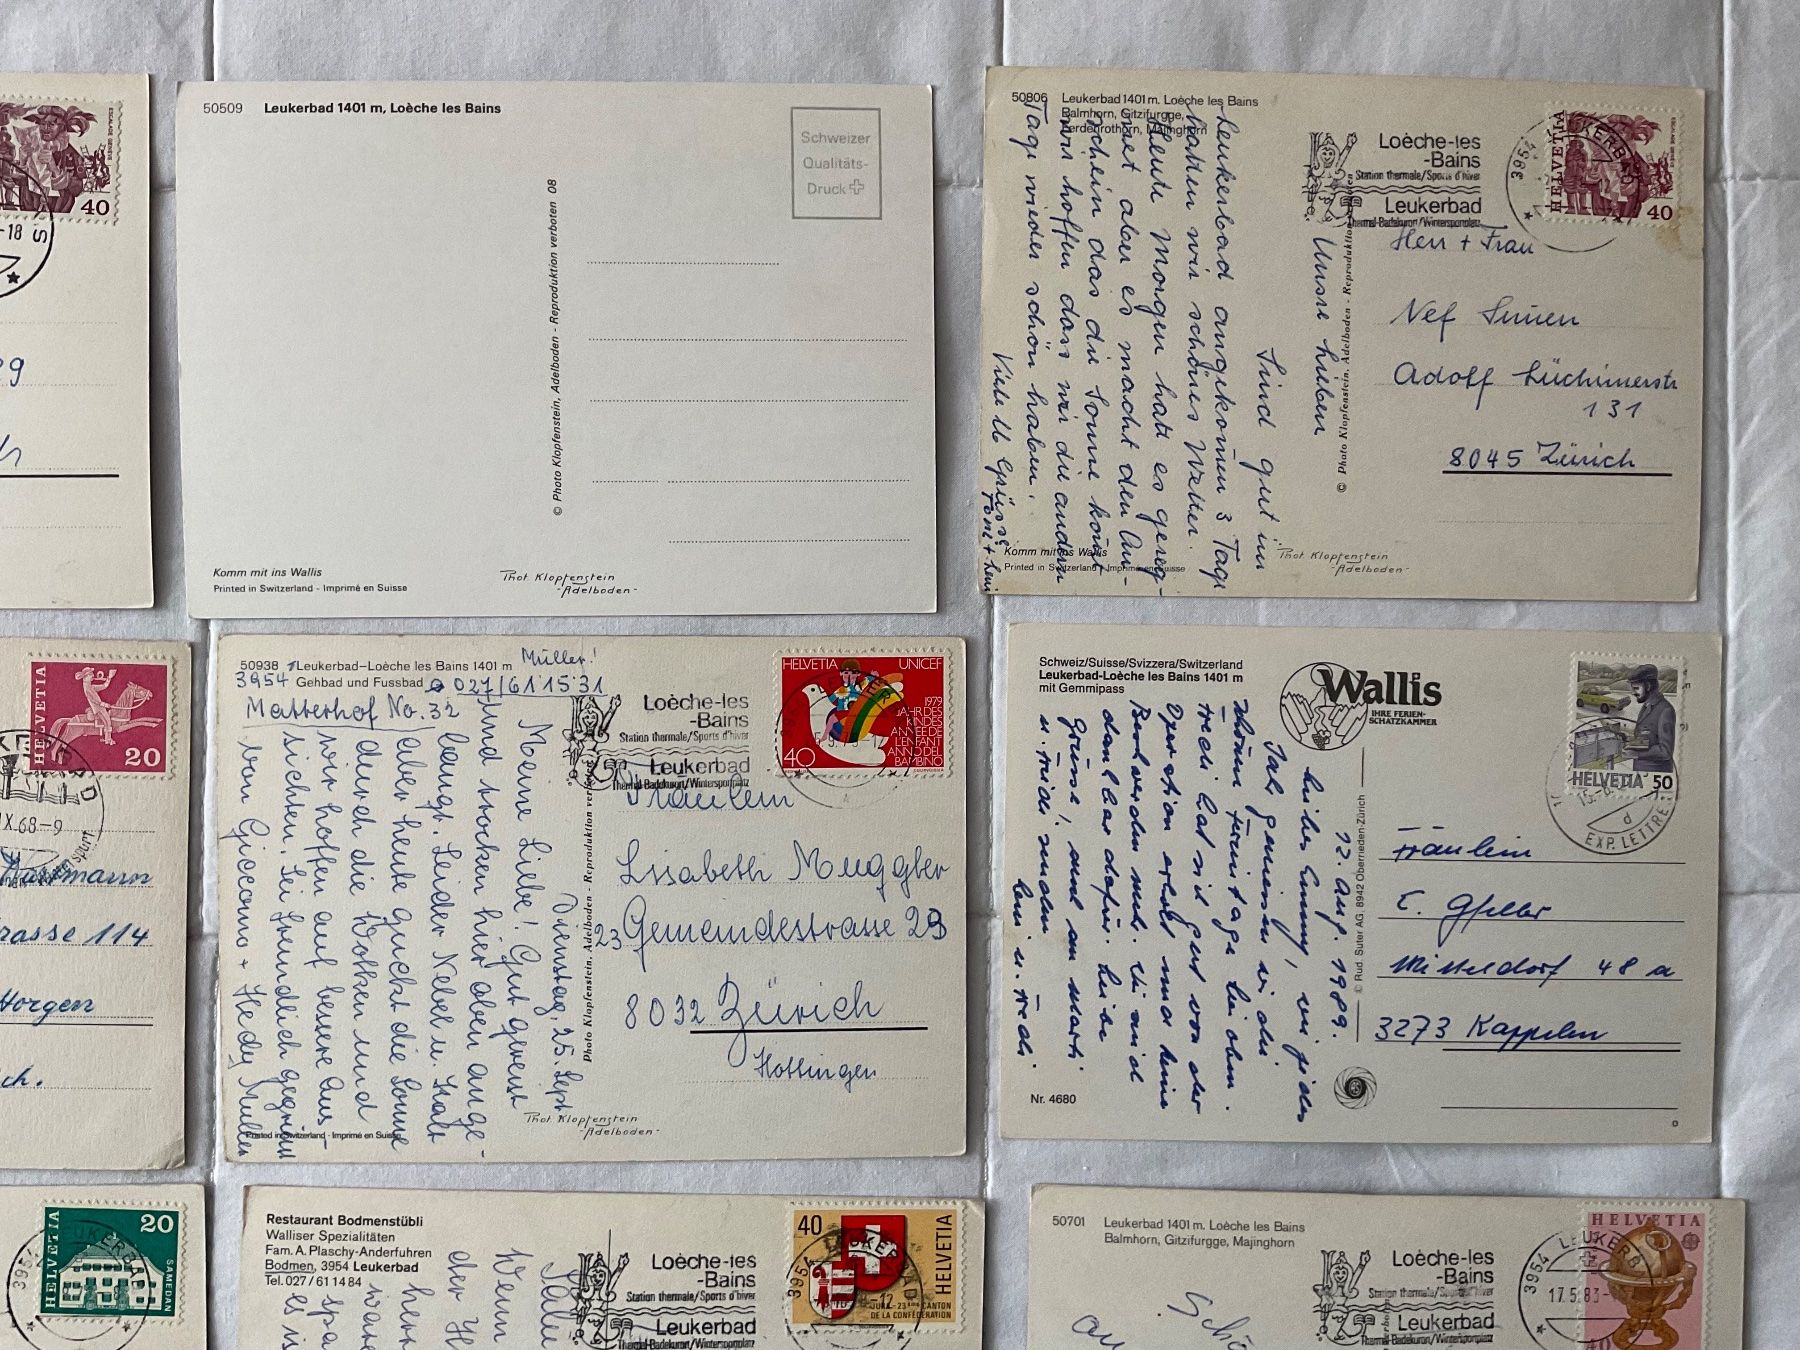 40
-18
50509 Leukerbad 1401 m, Loèche les Bains
Schweizer
Qualitäts-
Druck
© Photo Klopfenstein, Adelboden - Reproduktion verboten 08
Komm mit ins Wallis
Printed in Switzerland - Imprimé en Suisse
Phot. Klopfenstein
-Adelboden-
50806 Leukerbad 1401 m. Loèche les Bains
Balmhorn, Gitzifurgge,
Ferdenrothorn, Majinghorn
Loèche-les
-Bains
Station thermale/Sports d'hiver
Leukerbad
Thermal-Badekurort/Wintersportplatz
3954 LEUKERBAD
HELVETIA
ESCALADE GENÈVE
40
Unsre Lieben
Sind gut in
Leukerbad angekomen 3 Tage
hatten wir schönes Wetter.
Heute Morgen hat es gereg-
net aber es macht den An-
schein das die Sonne komt
wir hoffen dass wir die andern
Tage wieder schön haben.
Viele lb Grüsse
Toni + Leni
Herr + Frau
Nef
Adolf Lüchingerstr
131
8045 Zürich
© Photo Klopfenstein, Adelboden - Reproduktion
Komm mit ins Wallis
Printed in Switzerland - Imprimé en Suisse
Phot. Klopfenstein
-Adelboden-
HELVETIA
20
IX.68-9
rasse 114
Horgen
ch.
50938 Leukerbad-Loèche les Bains 1401 m Müller!
3954 Gehbad und Fussbad 027/61 15 31
Matterhof No. 32
Loèche-les
-Bains
Station thermale/Sports d'hiver
Leukerbad
Thermal-Badekurort/Wintersportplatz
HELVETIA UNICEF
1979
JAHR DES
KINDES
ANNEE DE
L'ENFANT
ANNO DEL
BAMBINO
40
Dienstag, 25. Sept.
Meine Liebe! Gut gereist
und trocken hier oben ange-
langt. Leider Nebel u. kalt
aber heute guckt die Sonne
durch die Wolken und
wir hoffen auf bessere Aus-
sichten. Sei freundlich gegrüsst
von Giocomo + Hedy Müller
Fräulein
Lisabeth Muggler
23 Gemeindestrasse 23
8032 Zürich
Hottingen
Photo Klopfenstein, Adelboden - Reproduktion verboten
Printed in Switzerland - Imprimé en Suisse
Phot. Klopfenstein
-Adelboden-
Schweiz/Suisse/Svizzera/Switzerland
Leukerbad-Loèche les Bains 1401 m
mit Gemmipass
Wallis
IHRE FERIEN-
SCHATZKAMMER
HELVETIA 50
EXP. LETTRE
d
12. Aug. 1989.
Liebes Emmy, wie jedes
Jahr geniessen wir die
schönen Ferientage hier oben.
Fredi hat sich gut von der
Operation erholt und keine
Beschwerden mehr. Wir sind
dankbar dafür. Liebe
Grüsse, auch an Marti
Leni u. Fredi
Fräulein
E. Gfeller
Mitteldorf 48 a
3273 Kappelen
© Rud. Suter AG, 8942 Oberrieden-Zürich
Nr. 4680
D
HELVETIA
20
SAMEDAN
3954 LEUKERBAD
Restaurant Bodmenstübli
Walliser Spezialitäten
Fam. A. Plaschy-Anderfuhren
Bodmen, 3954 Leukerbad
Tel. 027 / 61 14 84
Wenn
der H
herr
ware
spa
es is
Loèche-les
-Bains
Station thermale/Sports d'hiver
Leukerbad
Thermal-Badekurort/Wintersportplatz
40
HELVETIA
3954 LEUKERBAD
JURA-23ème CANTON
DE LA CONFEDERATION
50701 Leukerbad 1401 m. Loèche les Bains
Balmhorn, Gitzifurgge, Majinghorn
Loèche-les
-Bains
Station thermale/Sports d'hiver
Leukerbad
Thermal-Badekurort/Wintersportplatz
3954 LEUKERB
17.5.83
HELVETIA
40